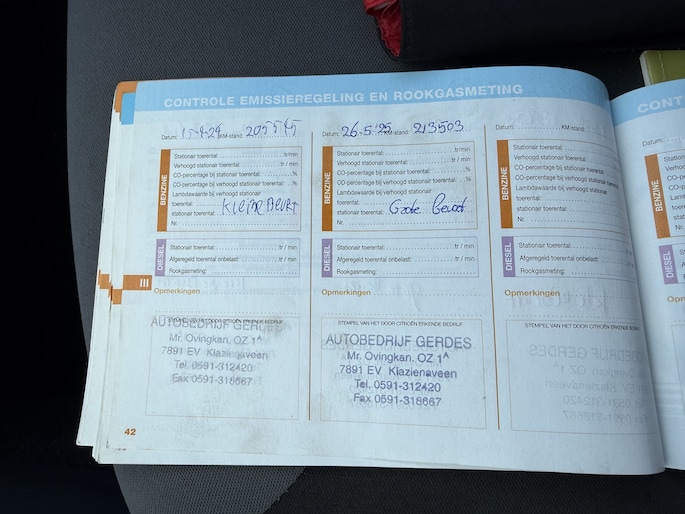 CONTROLE EMISSIEREGELING EN ROOKGASMETING
Datum: KM-stand:
BENZINE
Stationair toerental: tr/min
Verhoogd stationair toerental: tr / min
CO-percentage bij stationair toerental: %
CO-percentage bij verhoogd stationair toerental: %
Lambdawaarde bij verhoogd stationair
toerental:
stationair toerental: KLEINE BEURT
Nr.
DIESEL
Stationair toerental: tr / min
Afgeregeld toerental onbelast: tr / min
Rookgasmeting:
Opmerkingen
STEMPEL VAN HET DOOR CITROËN ERKENDE BEDRIJF
AUTOBEDRIJF GERDES
Mr. Ovingkan. OZ 1^A
7891 EV Klazienaveen
Tel. 0591-312420
Fax 0591-318667
42
Datum: 26-5-'25 KM-stand: 213503
BENZINE
Stationair toerental: tr/min
Verhoogd stationair toerental: tr / min
CO-percentage bij stationair toerental: %
CO-percentage bij verhoogd stationair toerental: %
Lambdawaarde bij verhoogd stationair
toerental:
stationair toerental: Grote Beurt
Nr.
DIESEL
Stationair toerental: tr / min
Afgeregeld toerental onbelast: tr / min
Rookgasmeting:
Opmerkingen
STEMPEL VAN HET DOOR CITROËN ERKENDE BEDRIJF
AUTOBEDRIJF GERDES
Mr. Ovingkan. OZ 1^A
7891 EV Klazienaveen
Tel. 0591-312420
Fax 0591-318667
Datum: KM-stand:
BENZINE
Stationair toerental:
Verhoogd stationair toerental:
CO-percentage bij stationair toerental:
CO-percentage bij verhoogd stationair toerental:
Lambdawaarde bij verhoogd stationair
toerental:
stationair toerental:
Nr.
DIESEL
Stationair toerental:
Afgeregeld toerental onbelast:
Rookgasmeting:
Opmerkingen
STEMPEL VAN HET DOOR CITROËN ERKENDE BEDRIJF
III
CONT
Datum:
BENZINE
DIESEL
Opm